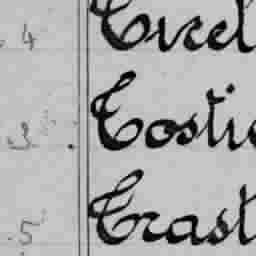 4 Circel
3 . Costie
5 Crast